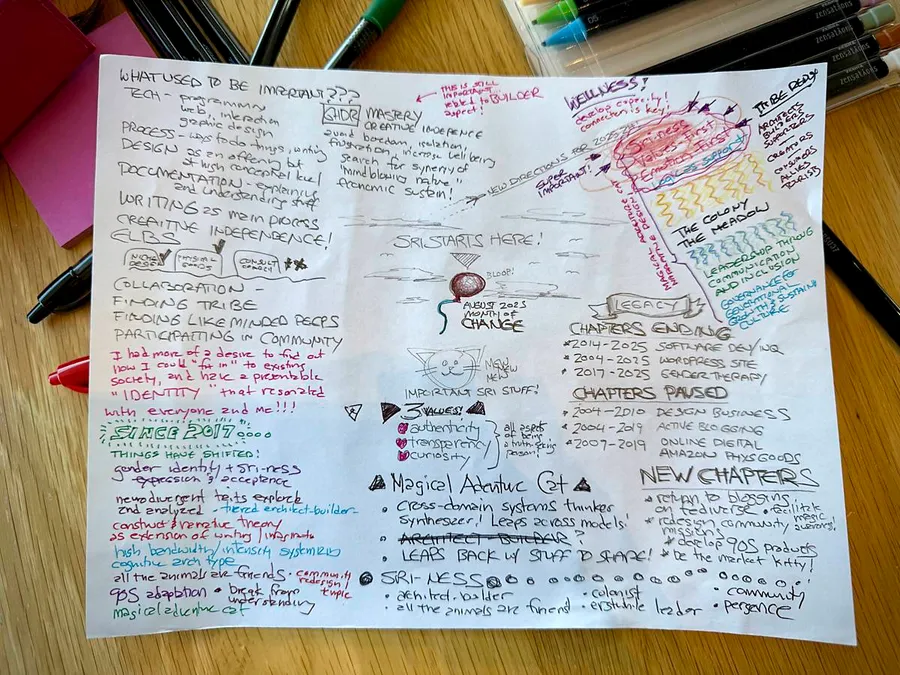 WHAT USED TO BE IMPORTANT???
TECH - programming
web, interaction
graphic design
PROCESS - ways to do things, writing
DESIGN as an offering but
at high conceptual level
DOCUMENTATION - explaining
and understanding stuff
WRITING as main process
CREATIVE INDEPENDENCE!
ELBS
NICHE DESIGN
PHYSICAL GOODS
CONSULT
COLLABORATION -
FINDING TRIBE
FINDING LIKE MINDED PEEPS
PARTICIPATING IN COMMUNITY
I had more of a desire to find out
how I could "fit in" to existing
society, and have a presentable
"IDENTITY" that resonated
with everyone and me!!!
SINCE 2017
THINGS HAVE SHIFTED!
gender identity + sri-ness
expression & acceptance
neurodivergent traits explored
and analyzed - tiered architect-builder-
construct & narrative theory
as extension of writing / informatio
high bandwidth / intensity systemizing
cognitive archtype
all the animals are friends • community
redesign / topic
90S adaptation • break from
understanding
magical adventure cat
GHDR MASTERY
CREATIVE INDEPENCE
avoid boredom, isolation,
frustration, increase well being
search for synergy of
mindblowing nature!
economic sustain!
THIS IS STILL
IMPORTANT
related to BUILDER
aspect!
NEW DIRECTIONS FOR 2025
SUPER
IMPORTANT!
SRI STARTS HERE!
BLOOP!
AUGUST 2025
MONTH OF
CHANGE
MEW
MEW
MEW
IMPORTANT SRI STUFF!
3 VALUES!
authenticity
transparency
curiosity
all aspects
of being
a truth-seeing
person!
Magical Adventure Cat
• cross-domain systems thinker
synthesizer! Leaps across models!
• ARCHITECT BUILDER ?
• LEAPS BACK w/ STUFF TO SHARE!
SRI-NESS
• architect-builder
• all the animals are friend
• colonist
• erstwhile leader
• community
• persence
WELLNESS!
develop capacity!
connection is key!
Sri-ness
Values First
LEADS SUPPORT
TRIBE REDSN
ARCHITECT
BUILDERS
SUPPORTERS
CREATORS
CONSUMERS
ALLIES
TOURISTS
THE COLONY
THE MEADOW
LEADERSHIP THROUG
COMMUNICATION
AND INCLUSION
GOVERNANCE FOR
GENERATIONAL
GROWTH & SUSTAIN
CULTURE
LEGACY
CHAPTERS ENDING
2014-2025 SOFTWARE DEV/INQ
2004-2025 WORDPRESS SITE
2017-2025 GENDER THERAPY
CHAPTERS PAUSED
2004-2010 DESIGN BUSINESS
2004-2019 ACTIVE BLOGGING
2007-2019 ONLINE DIGITAL
AMAZON PHYS GOODS
NEW CHAPTERS
return to blogging
on fediverse
• facilitate
magic
redesign community
mission
develop 90S products
be the market kitty!
zensations
zensations
zensations